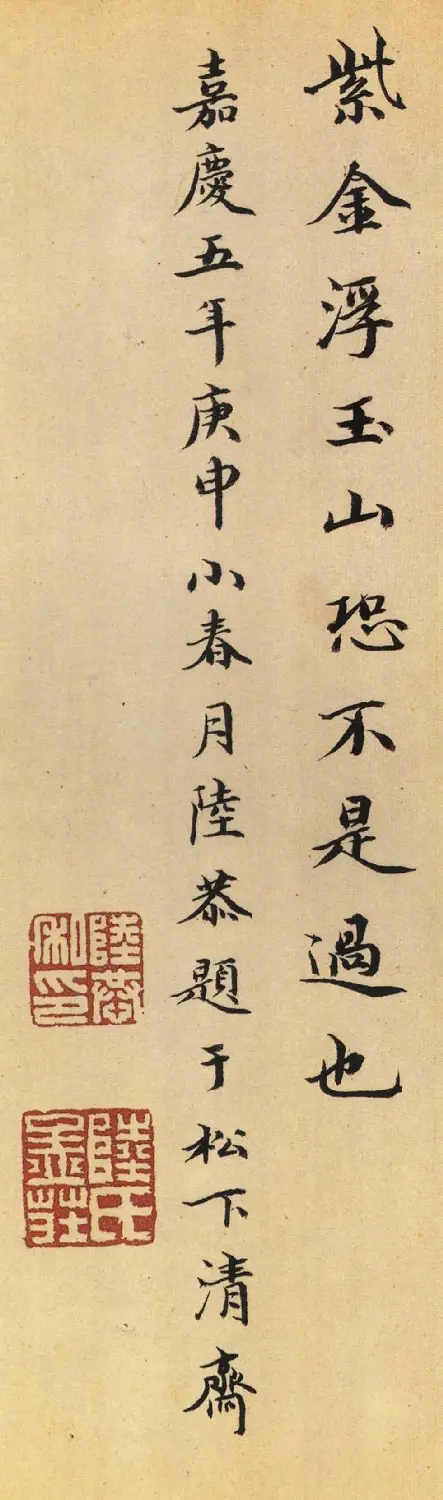 紫金浮玉山恐不是過也
嘉慶五年庚申小春月陸恭題于松下清齋
陸恭私印
陸氏孟莊